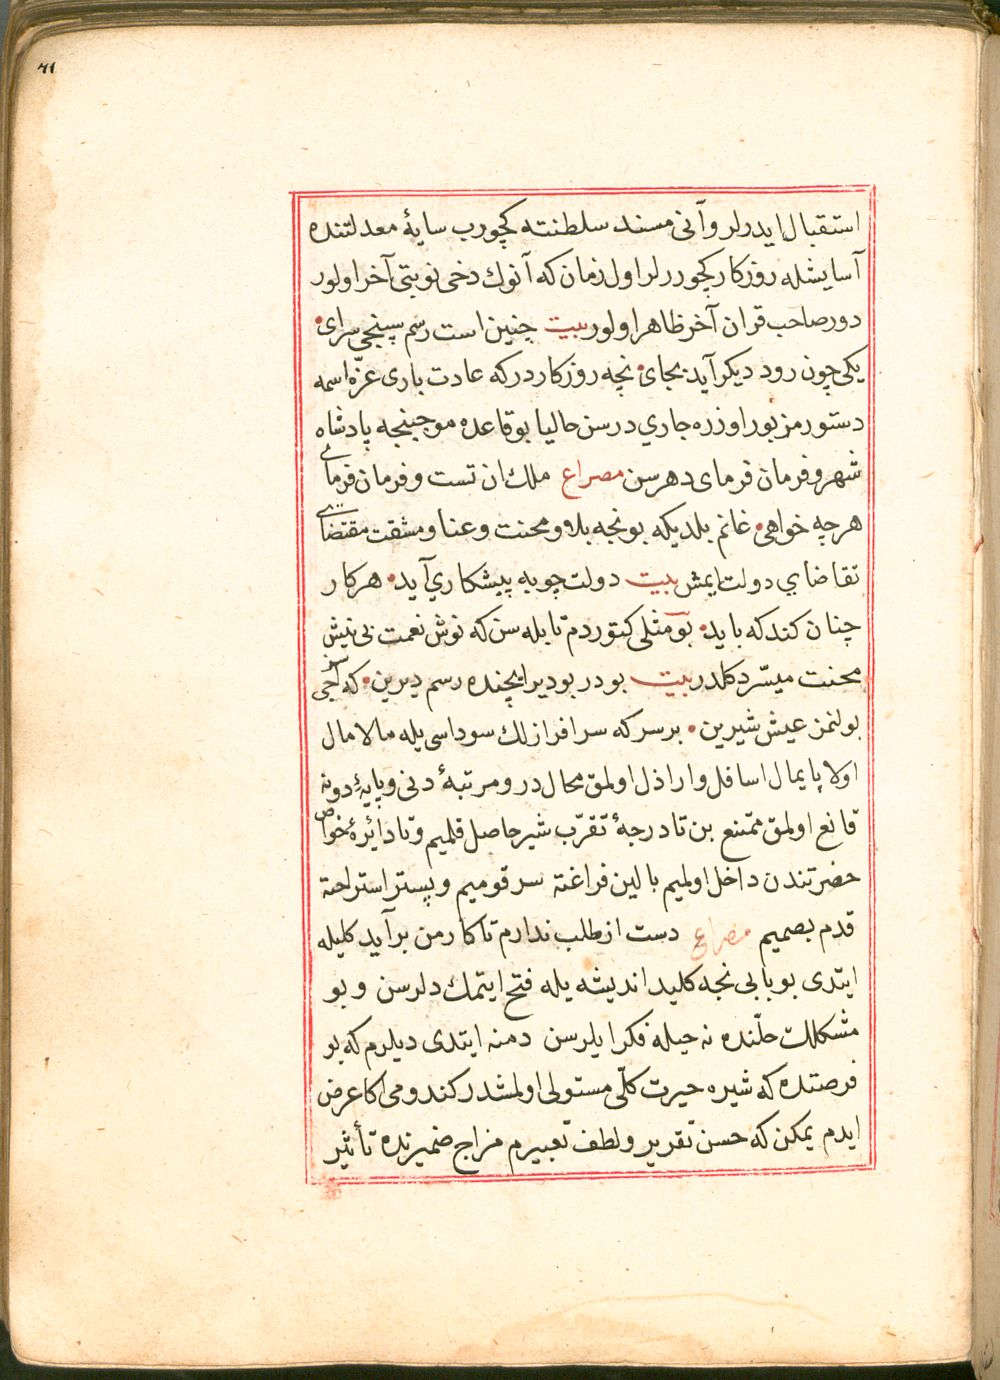 ٧١
استقبال ایدرلر وآنی مسند سلطنته کچورب سایهٔ معدلتنده
آسایشله روزکار کچوررلر اول زمان که آنوك دخی نوبتی آخر اولور
دور صاحب قران آخر ظاهر اولور بیت چنین است رسم سپنجی سرای
یکی چون رود دیکر آید بجای نچه روزکاردرکه عادت باری عزّ اسمه
دستور مزبور اوزره جاري در سن حالیا بو قاعده موجبنجه پادشاه
شهر و فرمان فرمای دهرسن مصراع ملك ان تست و فرمان فرمای
هرچه خواهی غانم بلدیکه بونجه بلا و محنت و عنا و مشقت مقتضای
تقاضاي دولت ایمش بیت دولت چو به پیشکاري آید هر کار
چنان کند که باید بو مثلی کتوردم تا بیله سن که نوش نعمت بی نیش
محنت میسّر دکلدر بیت بودر بو دیر ایچنده رسم دیرین که آجی سز
بولنمز عیش شیرین بر سرکه سرافرازلك سوداسی یله مالامال
اولا پایمال اسافل و اراذل اولمق محالدر و مرتبهٔ دنی و پایهٔ دونه
قانع اولمق ممتنع بن تا درجهٔ تقرّب شیر حاصل قلمیم و تا دائرهٔ خواص
حضرتندن داخل اولمیم بالین فراغته سر قومیم و بستر استراحته
قدم بصمیم مصراع دست از طلب ندارم تا کار من برآید کلیله
ایتدی بو بابی نجه کلید اندیشه یله فتح ایتمك دلرسن و بو
مشکلك حلّنده نه حیله فکر ایلرسن دمنه ایتدی دیلرم که بو
فرصتده که شیره حیرت کلّی مستولی اولمشدر کندومی اکا عرض
ایدم یمکن که حسن تقریر و لطف تعبیرم مزاج ضمیرنده تأثیر